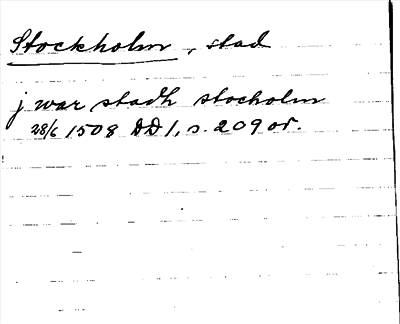 Stockholm, stad
j war stadh stocholm
28/6 1508 DD 1, s. 209 or.